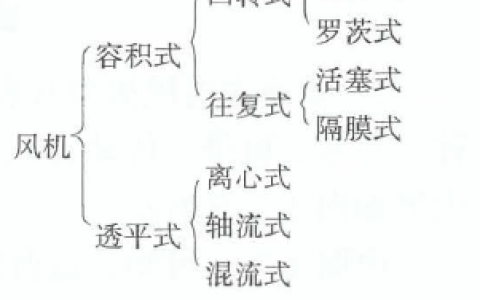 罗茨式
容积式
活塞式
往复式
隔膜式
风机
离心式
透平式
轴流式
混流式